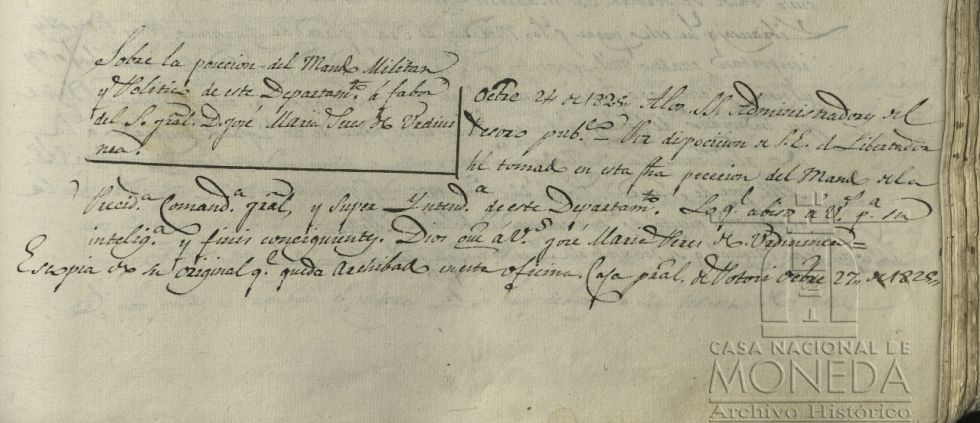 Sobre la poseccion del Mando Militar
y Politico de este Departamto á fabor
del Sr. gral. D. José Maria Peres de Urdini
nea.
Octre 24 de 1825. A los SS. Administradores del
tesoro pubco Por disposicion de S.E. el Libertador
hé tomado en esta fha pocecion del Mando de la
Precida Comanda gral, y Super Yntenda de este Departamto. Lo qe abiso a Vs. pa su
inteliga y fines conciguientes. Dios gue a Vs. José Maria Peres de Urdininea=
Es copia de su original qe queda Archibado en esta oficina. Casa pral. de Potosi Octre 27,, de 1825,,
CASA NACIONAL DE
MONEDA
Archivo Histórico